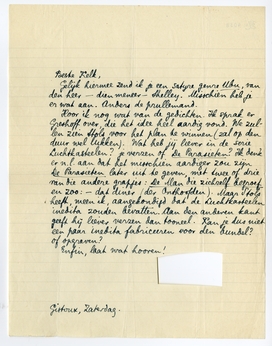 Beste Eelk,
Gelijk hiermee zend ik je een satyre genre Ubu, van
den heer — dien meneer — Shelley. Misschien heb je
er wat aan. Anders de prullemand.
Hoor ik nog wat van de gedichten. Ik sprak er
Greshoff over, die het idee heel aardig vond. We zul-
len zien Stols voor het plan te winnen (zal op den
duur wel lukken). Wat heb jij liever in de serie
Luchtkasteelen? je verzen of De Parasieten? Ik denk
n.l. aan dat het misschien aardiger zou zijn
De Parasieten later uit te geven, met twee of drie
van die andere grapjes: De Man die zichzelf
en zoo: — dat diner der
heeft, meen ik, aangekondigd dat de Luchtkasteelen
inedita zouden bevatten. Aan den anderen kant
geeft hij liever verzen dan tooneel. Kan je dus niet
een paar inedita fabriceeren voor den bundel?
of opgraven?
Enfin, laat wat hooren!
Gistoux, Zaterdag.